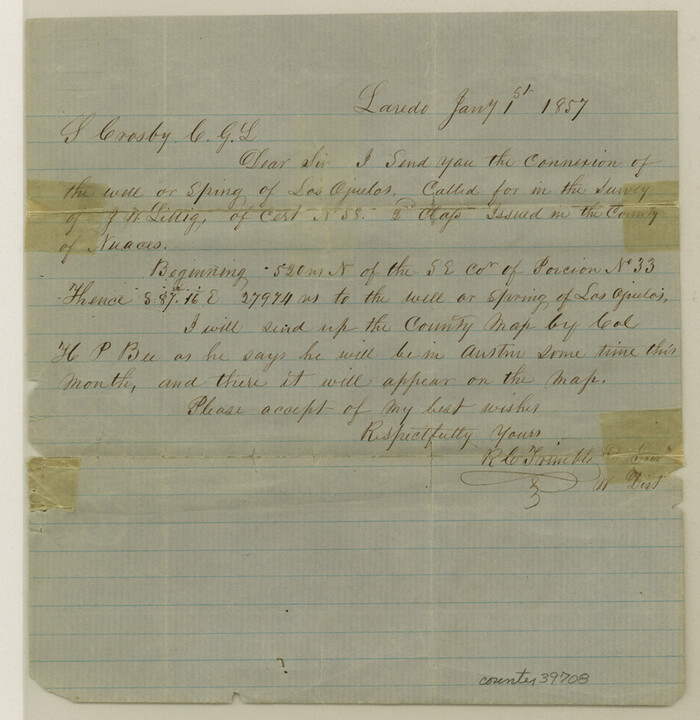 Laredo Jany 1st 1857
S Crosby C. G. L
Dear Sir I Send you the Connexion of
the well or Spring of Los Ojuelos. Called for in the Survey
of J W Littig, of Cert No 58. 2d Class Issued in the County
of Nuaces.
Beginning 520 vrs N of the S E cor of Porcion No 33
Thence S 87.16 E 27974 vrs to the well or Spring of Los Ojuelos,
I will send up the County Map by Col
H P Bee as he says he will be in Austin some time this
Month, and there it will appear on the Map.
Please accept of my best wishes
Respectfully Yours
Trimble
Dist
counter 39708